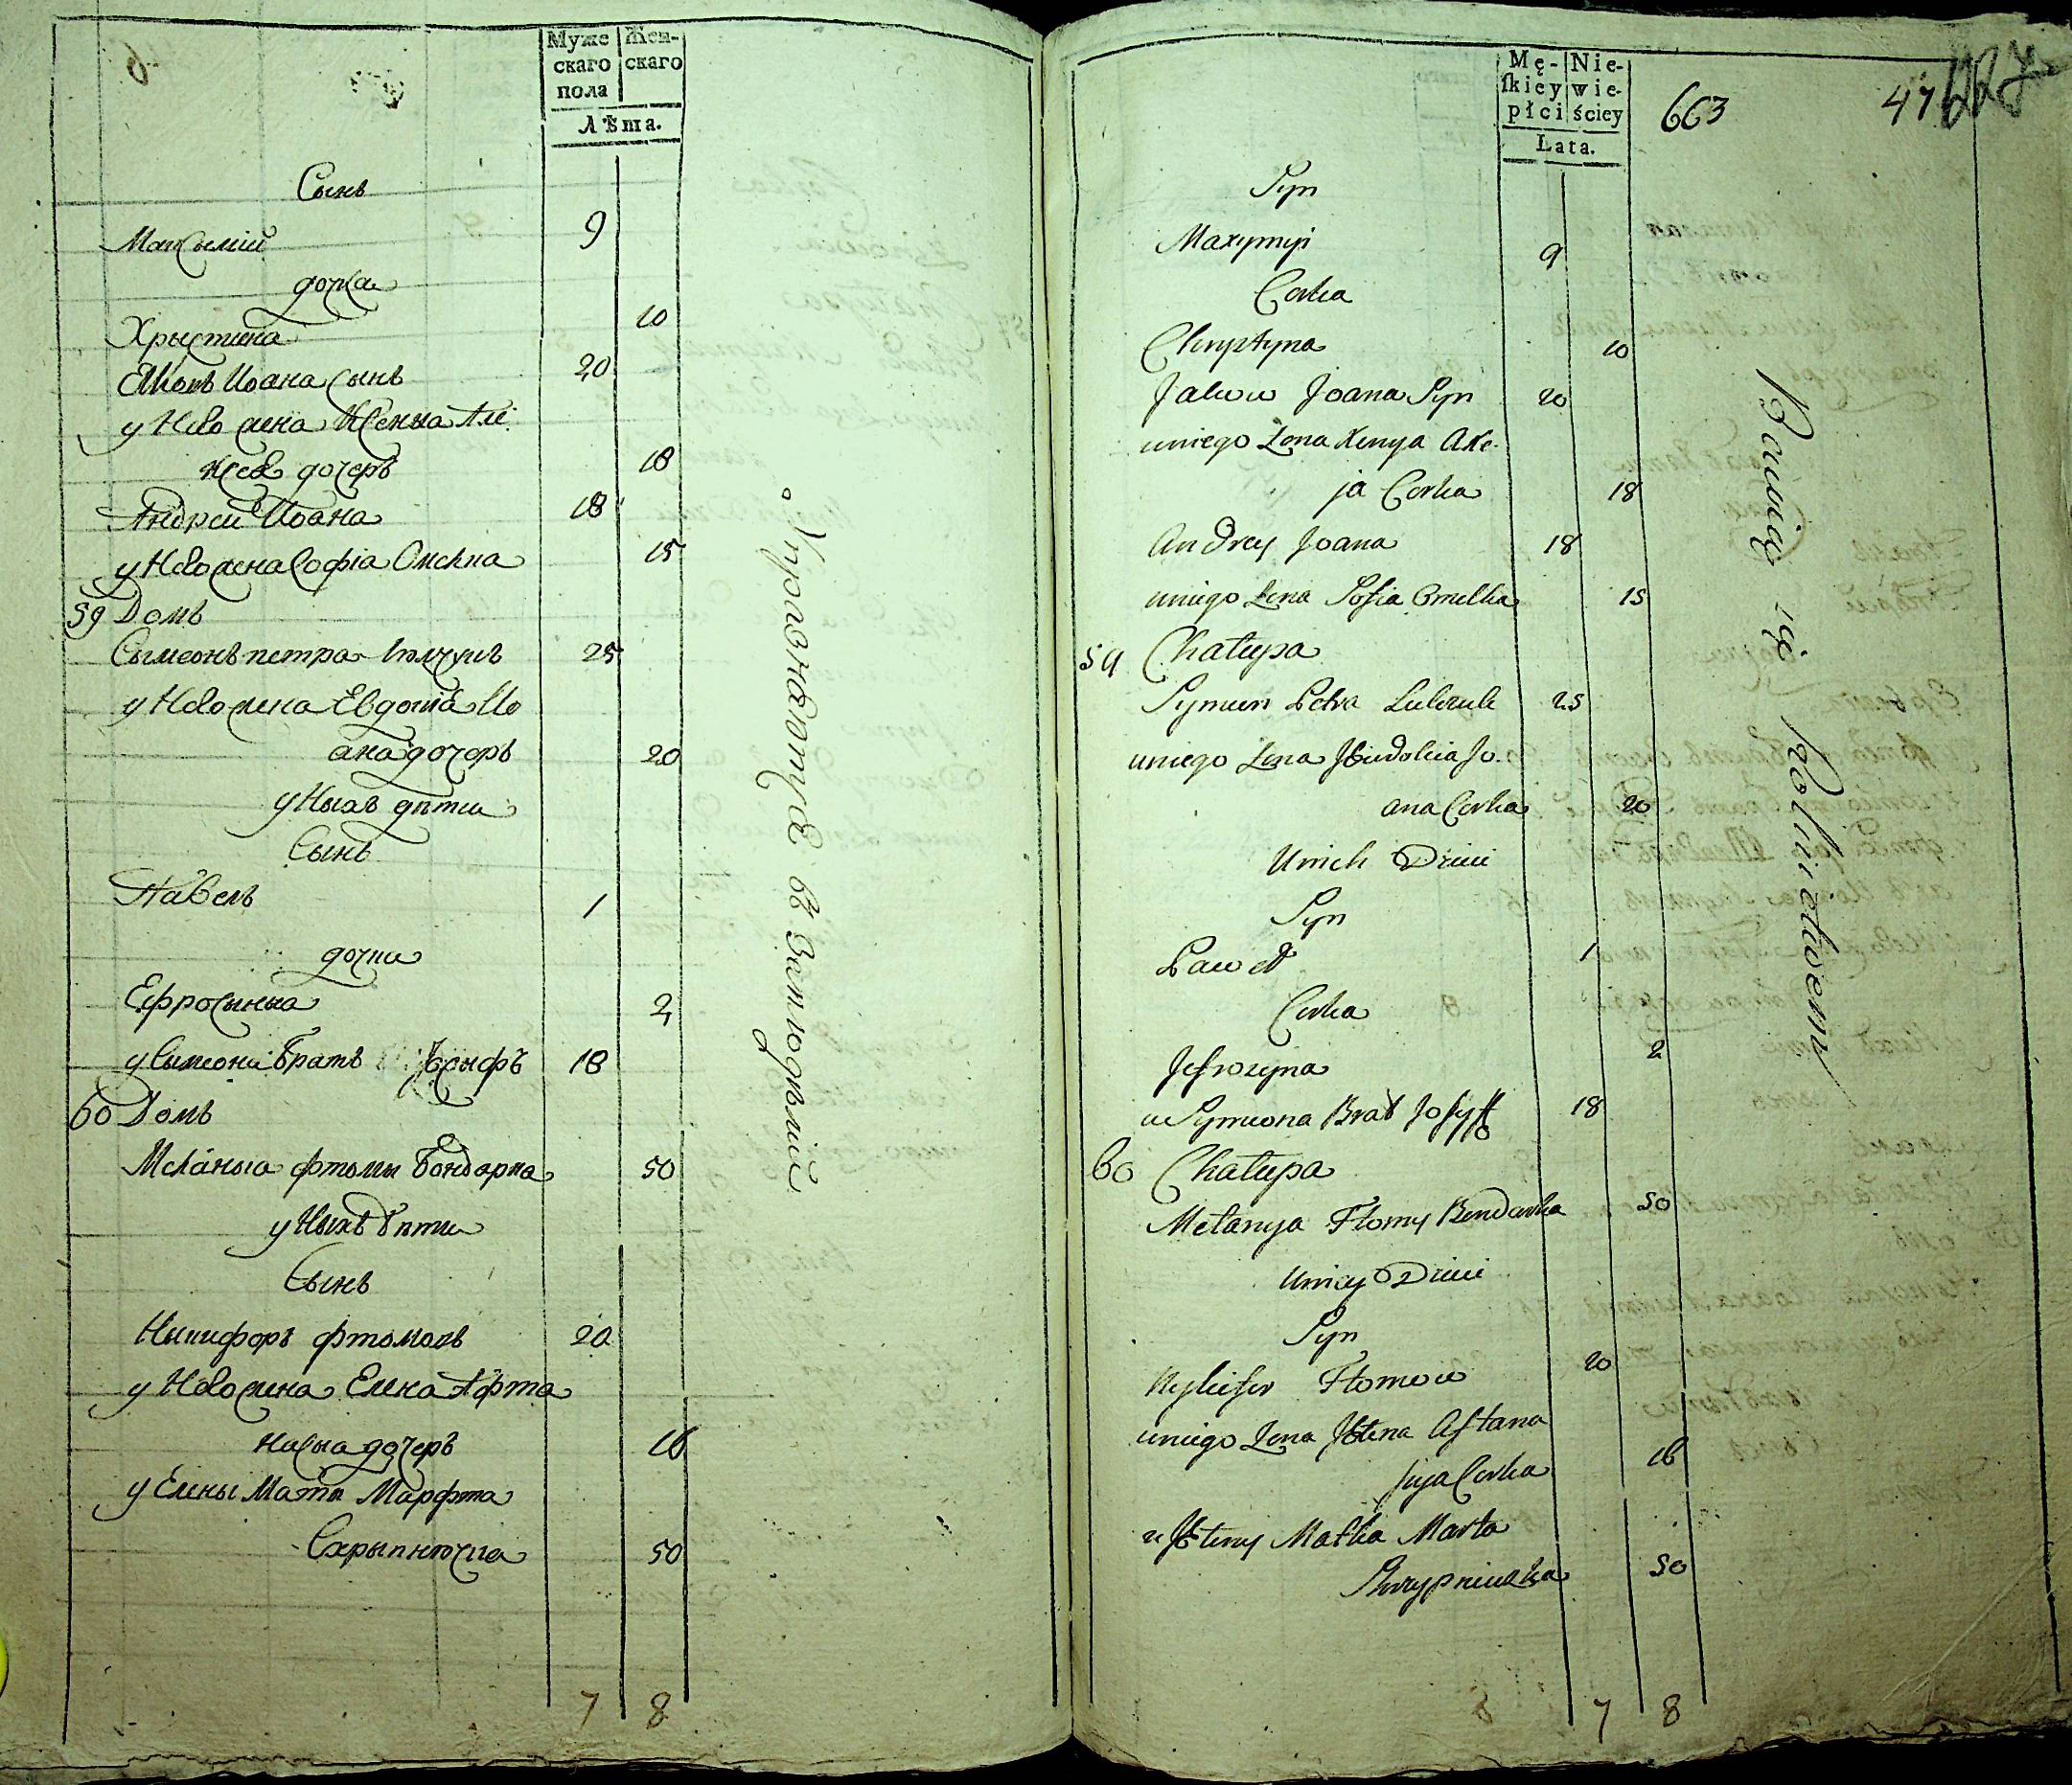 Муже Жен-
скаго скаго
пола
Лѣта.
Сынъ
Максымій 9
дочка
Хрыстина 10
Яковъ Иоана Сынъ 20
у Него жена Ксенья Але
ксѣя дочеръ 18
Андрей Иоана 18
у Него жена Софіа Омелка 15
59 Домъ
Сымеонъ петра 25
у Него жена Евдокіа Ио
ана дочеръ 20
у Ныхъ дѣти
Сынъ
Павелъ 1
дочки
Ефросынья 2
у Сымеона братъ Іосыфъ 18
60 Домъ
Меланья фтомы бондарка 50
у Ныхъ дѣти
Сынъ
Никифоръ фтомовъ 20
у Него жена Елена Афта
насыа дочеръ 16
у Елены Мати Марфта
Скрыпнючка 50
7 8
Упражнаются въ Земледѣліи
Mę- Nie-
skiey wie-
płci ściey
Lata.
663
47
Syn
Maxymyi 9
Corka
Chrystyna 10
Jakow Joana Syn 20
uniego Zona Xenya Axe-
ja Corka 18
Andrey Joana 18
uniego Zona Sofia Omelka 15
59 Chałupa
Symeon Petra 25
uniego Zona Jewdokia Jo-
ana Corka 20
Unich Dzieci
Syn
Paweł 1
Corka
Jefrozyna 2
u Symeona Brat Josyff 18
60 Chałupa
Mełanya Ftomy Bondarka 50
Unicy Dzieci
Syn
Nykifor Ftomow 20
uniego Zona Jełena Aftana
sya Corka 16
u Jełeny Matka Marta
Skrypniuczka 50
7 8
Bawią się Rolnictwem